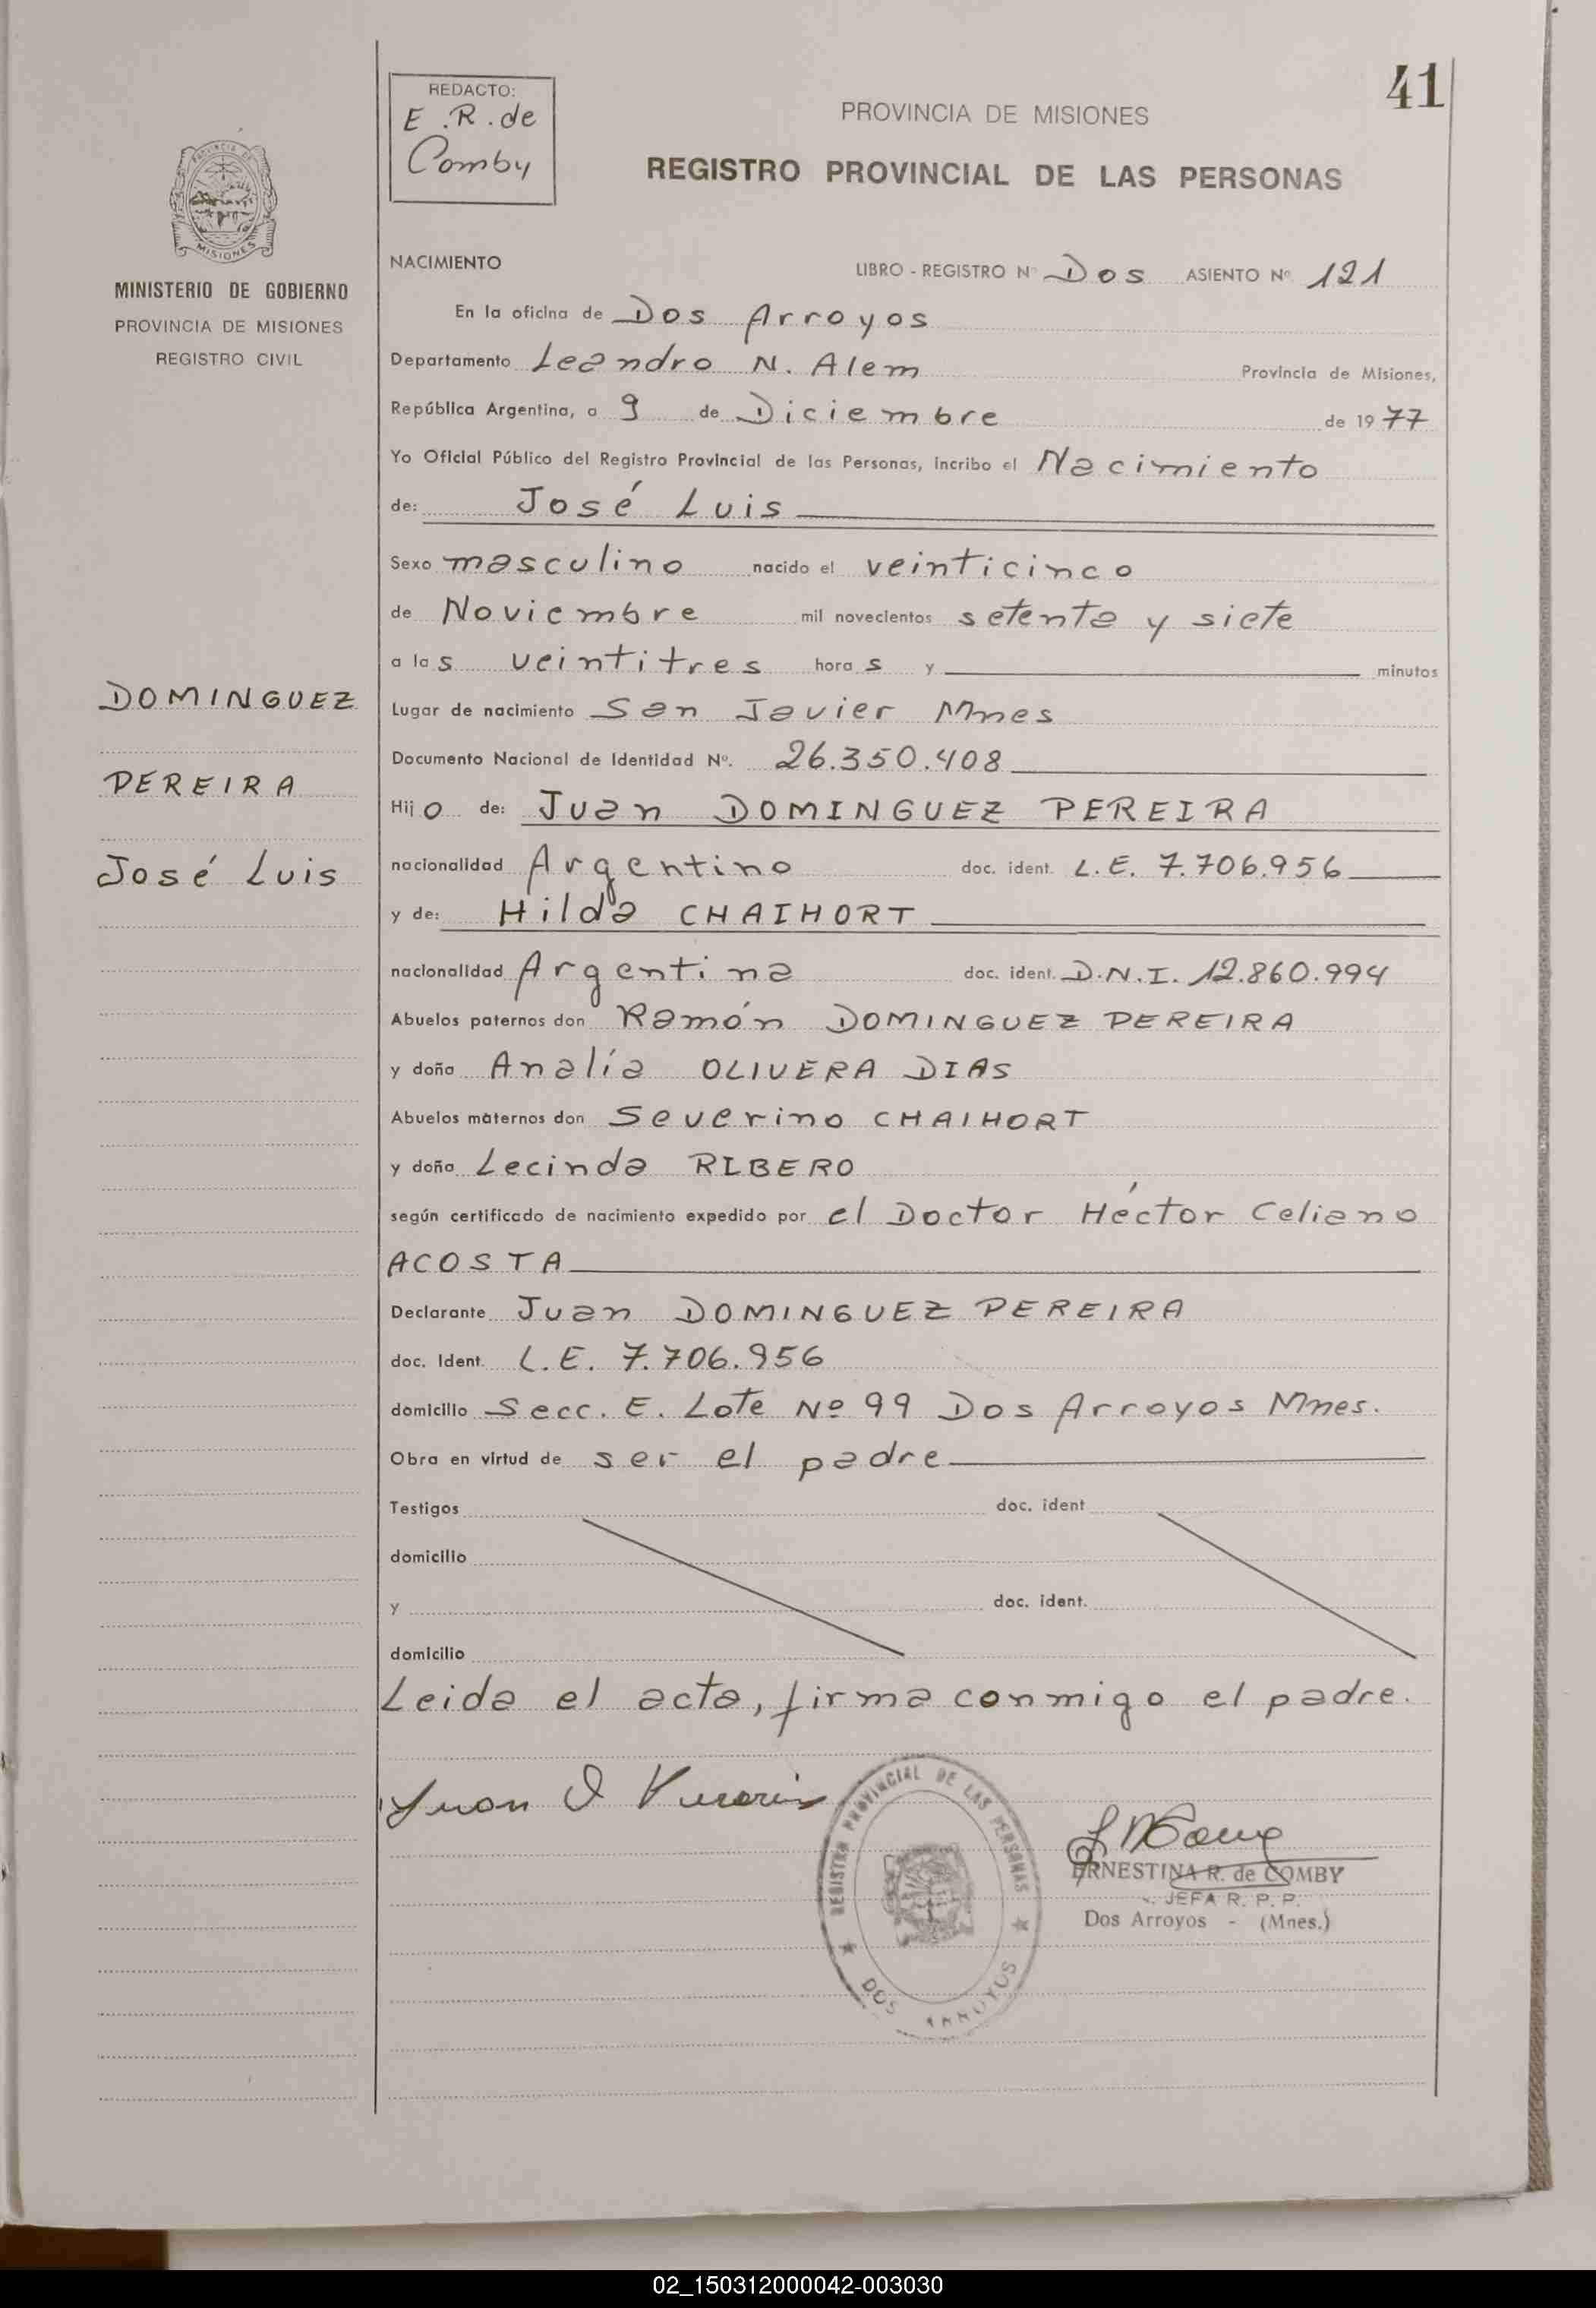 41
REDACTO:
E.R. de
Comby
PROVINCIA DE MISIONES
REGISTRO PROVINCIAL DE LAS PERSONAS
MISIONES
MINISTERIO DE GOBIERNO
PROVINCIA DE MISIONES
REGISTRO CIVIL
DOMINGUEZ
PEREIRA
José Luis
NACIMIENTO LIBRO - REGISTRO Nº Dos ASIENTO Nº 121
En la oficina de Dos Arroyos
Departamento Leandro N. Alem Provincia de Misiones,
República Argentina, a 9 de Diciembre de 1977
Yo Oficial Público del Registro Provincial de las Personas, incribo el Nacimiento
de: José Luis
Sexo masculino nacido el veinticinco
de Noviembre mil novecientos setenta y siete
a las veintitres horas y minutos
Lugar de nacimiento San Javier Mnes
Documento Nacional de Identidad Nº. 26.350.408
Hijo de: Juan DOMINGUEZ PEREIRA
nacionalidad Argentino doc. ident. L.E. 7.706.956
y de: Hilda CHAIHORT
nacionalidad Argentina doc. ident. D.N.I. 12.860.994
Abuelos paternos don Ramón DOMINGUEZ PEREIRA
y doña Analía OLIVERA DIAS
Abuelos maternos don Severino CHAIHORT
y doña Lecinda RIBERO
según certificado de nacimiento expedido por el Doctor Héctor Celiano
ACOSTA
Declarante Juan DOMINGUEZ PEREIRA
doc. Ident. L.E. 7.706.956
domicilio Secc. E. Lote Nº 99 Dos Arroyos Mnes.
Obra en virtud de ser el padre
Testigos doc. ident
domicilio
y doc. ident.
domicilio
Leida el acta, firma conmigo el padre.
Juan D
REGISTRO PROVINCIAL DE LAS PERSONAS
DOS ARROYOS
ERNESTINA R. de COMBY
JEFA R. P. P.
Dos Arroyos - (Mnes.)
02_150312000042-003030